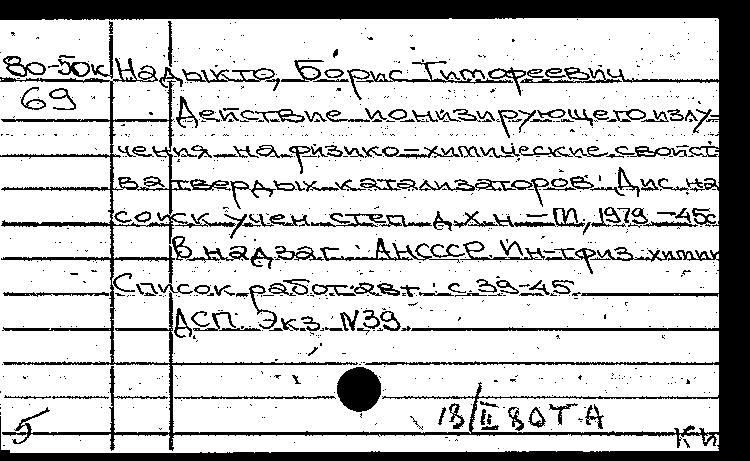 80-50к Надыкто, Борис Тимофеевич
69
Действие ионизирующего излу-
чения на физико-химические свойст-
ва твердых катализаторов: Дис на
соиск учен степ д.х.н. - М, 1979 - 45с
В надзаг: АН СССР Ин-т физ химии
Список работ авт: с 39-45.
ДСП. Экз. N39.
18/II 80 Т А
5